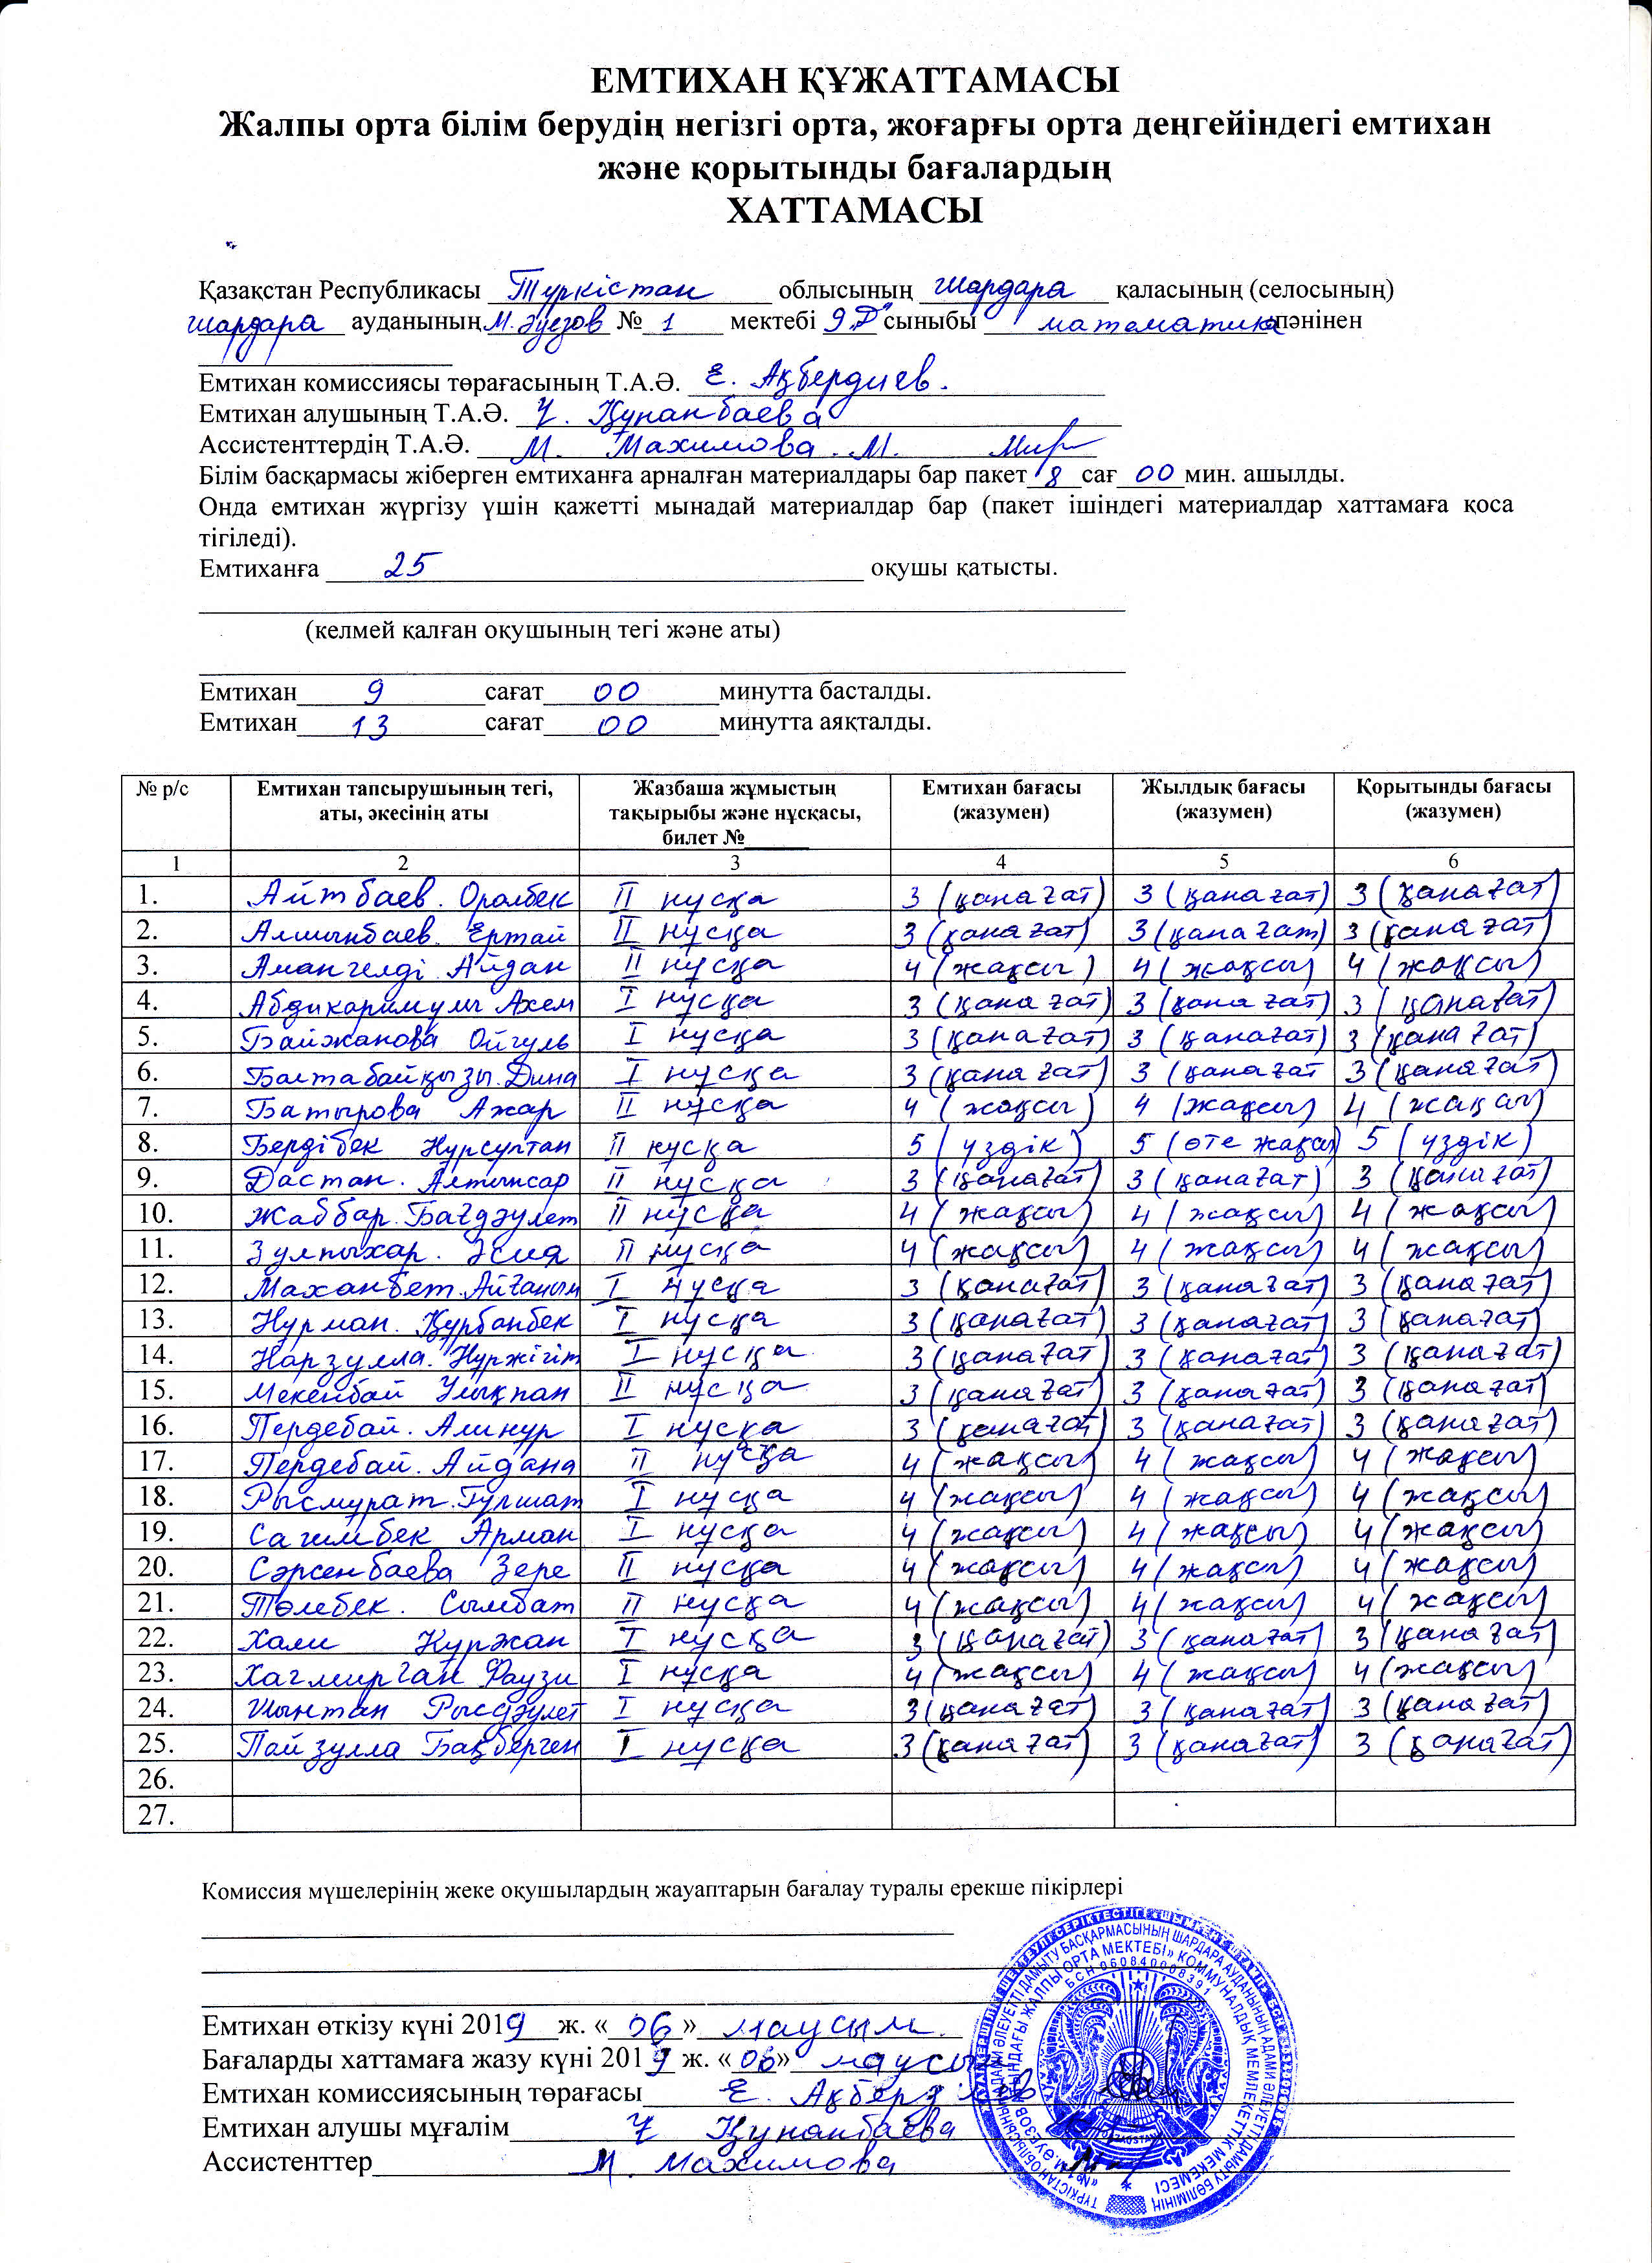 ЕМТИХАН ҚҰЖАТТАМАСЫ
Жалпы орта білім берудің негізгі орта, жоғарғы орта деңгейіндегі емтихан
және қорытынды бағалардың
ХАТТАМАСЫ
Қазақстан Республикасы Түркістан облысының Шардара қаласының (селосының)
Шардара ауданының М.Әуезов № 1 мектебі 9 "Д" сыныбы математика пәнінен
Емтихан комиссиясы төрағасының Т.А.Ә. Е. Ақбердиев.
Емтихан алушының Т.А.Ә. Ч. Құнанбаева
Ассистенттердің Т.А.Ә. М. Махимова. М.
Білім басқармасы жіберген емтиханға арналған материалдары бар пакет 8 сағ 00 мин. ашылды.
Онда емтихан жүргізу үшін қажетті мынадай материалдар бар (пакет ішіндегі материалдар хаттамаға қоса
тігіледі).
Емтиханға 25 оқушы қатысты.
(келмей қалған оқушының тегі және аты)
Емтихан 9 сағат 00 минутта басталды.
Емтихан 13 сағат 00 минутта аяқталды.
№ р/с Емтихан тапсырушының тегі, аты, әкесінің аты Жазбаша жұмыстың тақырыбы және нұсқасы, билет №____ Емтихан бағасы (жазумен) Жылдық бағасы (жазумен) Қорытынды бағасы (жазумен)
1 2 3 4 5 6
1. Айтбаев. Оралбек II нұсқа 3 (қанағат) 3 (қанағат) 3 (қанағат)
2. Алшынбаев. Ертай II нұсқа 3 (қанағат) 3 (қанағат) 3 (қанағат)
3. Амангелді Айдан II нұсқа 4 (жақсы) 4 (жақсы) 4 (жақсы)
4. Абдикаримұлы Ахем I нұсқа 3 (қанағат) 3 (қанағат) 3 (қанағат)
5. Байжанова Ойгуль I нұсқа 3 (қанағат) 3 (қанағат) 3 (қанағат)
6. Балтабайқызы. Дина I нұсқа 3 (қанағат) 3 (қанағат 3 (қанағат)
7. Батырова Ажар II нұсқа 4 (жақсы) 4 (жақсы) 4 (жақсы)
8. Бердібек Нұрсұлтан II нұсқа 5 (үздік) 5 (өте жақсы) 5 (үздік)
9. Дастан. Алтынсар II нұсқа 3 (қанағат) 3 (қанағат) 3 (қанағат)
10. Жаббар. Бағдәулет II нұсқа 4 (жақсы) 4 (жақсы) 4 (жақсы)
11. Зулпыхар. Әсия II нұсқа 4 (жақсы) 4 (жақсы) 4 (жақсы)
12. Маханбет. Айғаным I нұсқа 3 (қанағат) 3 (қанағат) 3 (қанағат)
13. Нұрман. Құрбанбек I нұсқа 3 (қанағат) 3 (қанағат) 3 (қанағат)
14. Нарзулла. Нұржігіт I нұсқа 3 (қанағат) 3 (қанағат) 3 (қанағат)
15. Мекенбай Ұлықпан II нұсқа 3 (қанағат) 3 (қанағат) 3 (қанағат)
16. Пердебай. Алинұр I нұсқа 3 (қанағат) 3 (қанағат) 3 (қанағат)
17. Пердебай. Айдана II нұсқа 4 (жақсы) 4 (жақсы) 4 (жақсы)
18. Рысмурат. Гүлшат I нұсқа 4 (жақсы) 4 (жақсы) 4 (жақсы)
19. Сагимбек Арман I нұсқа 4 (жақсы) 4 (жақсы) 4 (жақсы)
20. Сәрсенбаева Зере II нұсқа 4 (жақсы) 4 (жақсы) 4 (жақсы)
21. Төлебек. Сымбат II нұсқа 4 (жақсы) 4 (жақсы) 4 (жақсы)
22. Хали Нұржан I нұсқа 3 (қанағат) 3 (қанағат) 3 (қанағат)
23. Хагмирган Фаузи I нұсқа 4 (жақсы) 4 (жақсы) 4 (жақсы)
24. Шынтан Рысдәулет I нұсқа 3 (қанағат) 3 (қанағат) 3 (қанағат)
25. Пайзулла Бақберген I нұсқа 3 (қанағат) 3 (қанағат) 3 (қанағат)
26.
27.
Комиссия мүшелерінің жеке оқушылардың жауаптарын бағалау туралы ерекше пікірлері
Емтихан өткізу күні 2019 ж. «06» маусым.
Бағаларды хаттамаға жазу күні 2019 ж. «06» маусым
Емтихан комиссиясының төрағасы Е. Ақбердиев
Емтихан алушы мұғалім Ч Құнанбаева
Ассистенттер М. Махимова
БСН 060840008391
QAZAQSTAN